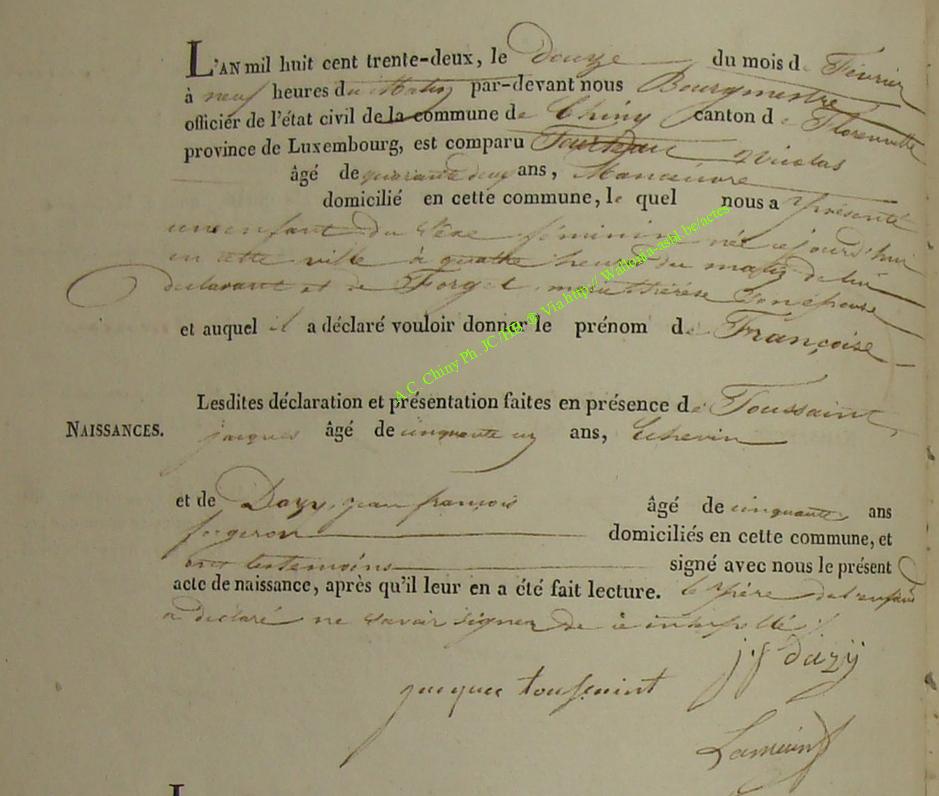 L'AN mil huit cent trente-deux, le Douze du mois de Février
à neuf heures du Matin par-devant nous Bourgmestre
officier de l'état civil de la commune de Chiny canton de Florenville
province de Luxembourg, est comparu Nicolas
âgé de quarante deux ans, Manœuvre
domicilié en cette commune, le quel nous a présenté
un enfant du sexe féminin né ce jourd'hui
en cette ville à quatre heures du matin de lui
déclarant et de Forget, marie thérèse son épouse
et auquel il a déclaré vouloir donner le prénom de Françoise
Lesdites déclaration et présentation faites en présence de Toussaint
NAISSANCES. jacques âgé de cinquante un ans, Echevin
et de Dazy, jean françois âgé de cinquante ans
forgeron domiciliés en cette commune, et
ont les temoins signé avec nous le présent
acte de naissance, après qu'il leur en a été fait lecture. le père de l'enfant
a déclaré ne savoir signer de ce interpellé
j f dazÿ
jacques toussaint
A.C. Chiny Ph. JC/HB ® Via http:// Wallonia-asbl.be/actes